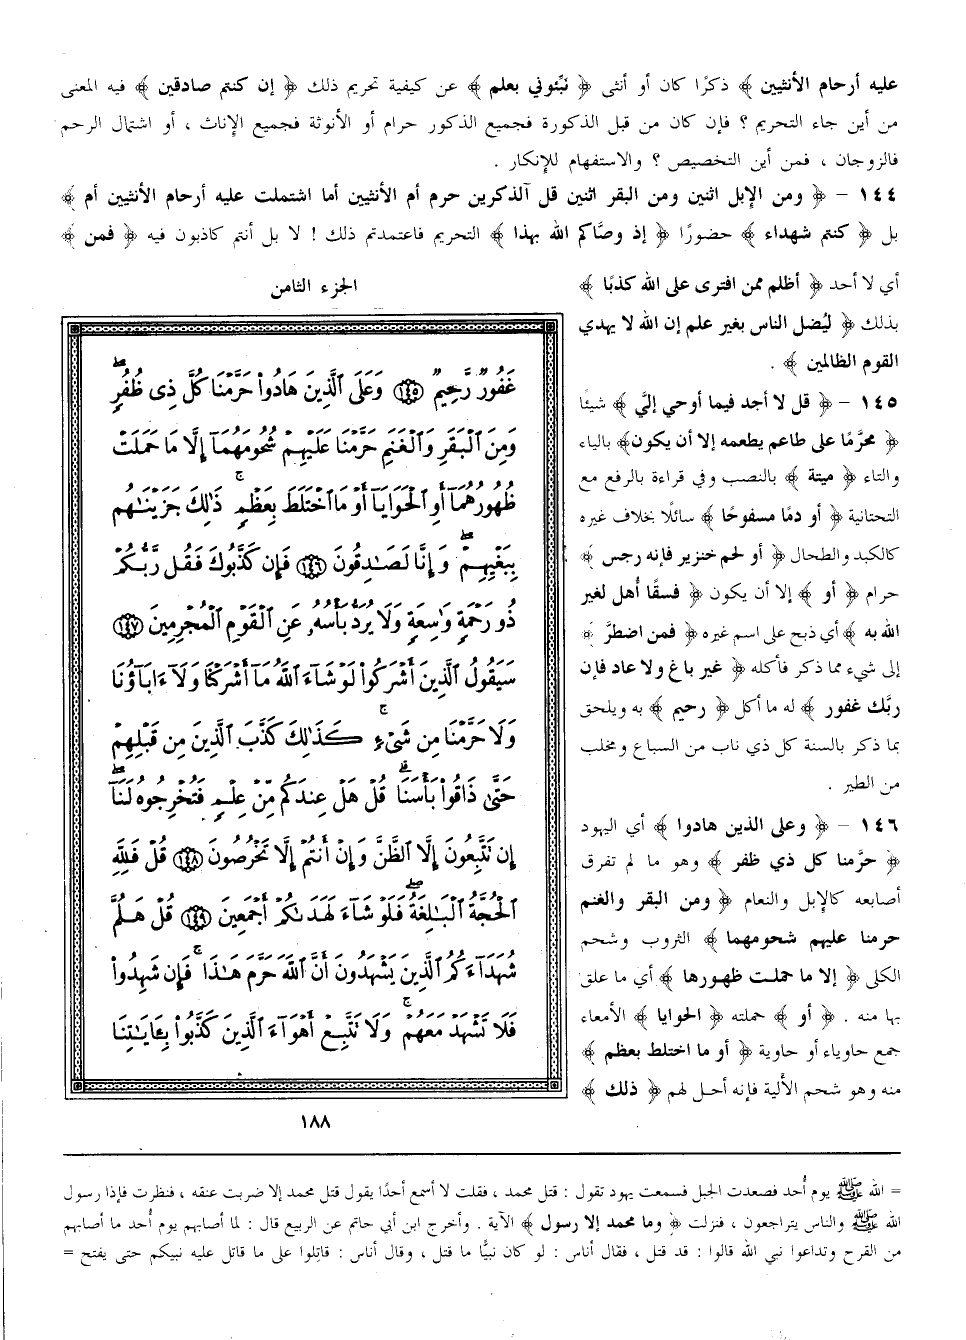 عليه أرحام الأنثيين ﴾ ذكرًا كان أو أنثى ﴿ نبِّئوني بعلم ﴾ عن كيفية تحريم ذلك ﴿ إن كنتم صادقين ﴾ فيه المعنى
من أين جاء التحريم ؟ فإن كان من قبل الذكورة فجميع الذكور حرام أو الأنوثة فجميع الإناث ، أو اشتمال الرحم
فالزوجان ، فمن أين التخصيص ؟ والاستفهام للإنكار .
١٤٤ – ﴿ ومن الإبل اثنين ومن البقر اثنين قل آلذكرين حرم أم الأنثيين أما اشتملت عليه أرحام الأنثيين أم ﴾
بل ﴿ كنتم شهداء ﴾ حضورًا ﴿ إذ وصَّاكم الله بهذا ﴾ التحريم فاعتمدتم ذلك ! لا بل أنتم كاذبون فيه ﴿ فمن ﴾
أي لا أحد ﴿ أظلم ممن افترى على الله كذبًا ﴾
بذلك ﴿ ليُضل الناس بغير علم إن الله لا يهدي
القوم الظالمين ﴾ .
١٤٥ – ﴿ قل لا أجد فيما أوحي إليَّ ﴾ شيئًا
﴿ محرَّمًا على طاعم يطعمه إلا أن يكون﴾ بالياء
والتاء ﴿ ميتة ﴾ بالنصب وفي قراءة بالرفع مع
التحتانية ﴿ أو دمًا مسفوحًا ﴾ سائلًا بخلاف غيره
كالكبد والطحال ﴿ أو لحم خنزير فإنه رجس ﴾
حرام ﴿ أو ﴾ إلا أن يكون ﴿ فسقًا أُهل لغير
الله به ﴾ أي ذبح على اسم غيره ﴿ فمن اضطرَّ ﴾
إلى شيء مما ذكر فأكله ﴿ غير باغ ولا عاد فإن
ربَّك غفور ﴾ له ما أكل ﴿ رحيم ﴾ به ويلحق
بما ذكر بالسنة كل ذي ناب من السباع ومخلب
من الطير .
١٤٦ – ﴿ وعلى الذين هادوا ﴾ أي اليهود
﴿ حرَّمنا كل ذي ظفر ﴾ وهو ما لم تفرق
أصابعه كالإبل والنعام ﴿ ومن البقر والغنم
حرمنا عليهم شحومهما ﴾ الثروب وشحم
الكلى ﴿ إلا ما حملت ظهورها ﴾ أي ما علق
بها منه . ﴿ أو ﴾ حملته ﴿ الحوايا ﴾ الأمعاء
جمع حاوياء أو حاوية ﴿ أو ما اختلط بعظم ﴾
منه وهو شحم الألية فإنه أحل لهم ﴿ ذلك ﴾
الجزء الثامن
غَفُورٌ رَّحِيمٌ ١٤٥ وَعَلَى ٱلَّذِينَ هَادُوا۟ حَرَّمْنَا كُلَّ ذِى ظُفُرٍۖ
وَمِنَ ٱلْبَقَرِ وَٱلْغَنَمِ حَرَّمْنَا عَلَيْهِمْ شُحُومَهُمَآ إِلَّا مَا حَمَلَتْ
ظُهُورُهُمَآ أَوِ ٱلْحَوَايَآ أَوْ مَا ٱخْتَلَطَ بِعَظْمٍۚ ذَٰلِكَ جَزَيْنَٰهُم
بِبَغْيِهِمْۖ وَإِنَّا لَصَٰدِقُونَ ١٤٦ فَإِن كَذَّبُوكَ فَقُل رَّبُّكُمْ
ذُو رَحْمَةٍ وَٰسِعَةٍ وَلَا يُرَدُّ بَأْسُهُۥ عَنِ ٱلْقَوْمِ ٱلْمُجْرِمِينَ ١٤٧
سَيَقُولُ ٱلَّذِينَ أَشْرَكُوا۟ لَوْ شَآءَ ٱللَّهُ مَآ أَشْرَكْنَا وَلَآ ءَابَآؤُنَا
وَلَا حَرَّمْنَا مِن شَىْءٍۚ كَذَٰلِكَ كَذَّبَ ٱلَّذِينَ مِن قَبْلِهِمْ
حَتَّىٰ ذَاقُوا۟ بَأْسَنَاۗ قُلْ هَلْ عِندَكُم مِّنْ عِلْمٍ فَتُخْرِجُوهُ لَنَآۖ
إِن تَتَّبِعُونَ إِلَّا ٱلظَّنَّ وَإِنْ أَنتُمْ إِلَّا تَخْرُصُونَ ١٤٨ قُلْ فَلِلَّهِ
ٱلْحُجَّةُ ٱلْبَٰلِغَةُۖ فَلَوْ شَآءَ لَهَدَىٰكُمْ أَجْمَعِينَ ١٤٩ قُلْ هَلُمَّ
شُهَدَآءَكُمُ ٱلَّذِينَ يَشْهَدُونَ أَنَّ ٱللَّهَ حَرَّمَ هَٰذَاۖ فَإِن شَهِدُوا۟
فَلَا تَشْهَدْ مَعَهُمْۚ وَلَا تَتَّبِعْ أَهْوَآءَ ٱلَّذِينَ كَذَّبُوا۟ بِـَٔايَٰتِنَا
١٨٨
= الله ﷺ يوم أُحد فصعدت الجبل فسمعت يهود تقول : قتل محمد ، فقلت لا أسمع أحدًا يقول قتل محمد إلا ضربت عنقه ، فنظرت فإذا رسول
الله ﷺ والناس يتراجعون ، فنزلت ﴿ وما محمد إلا رسول ﴾ الآية . وأخرج ابن أبي حاتم عن الربيع قال : لما أصابهم يوم أُحد ما أصابهم
من القرح وتداعوا نبي الله قالوا : قد قتل ، فقال أناس : لو كان نبيًّا ما قتل ، وقال أناس : قاتِلوا على ما قاتل عليه نبيكم حتى يفتح =